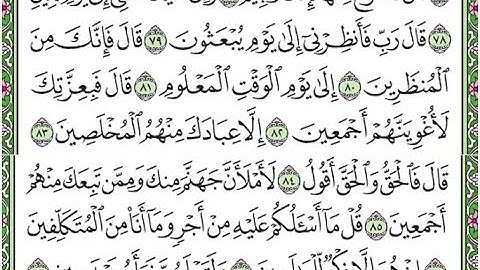 ٧٨ قَالَ رَبِّ فَأَنظِرْنِىٓ إِلَىٰ يَوْمِ يُبْعَثُونَ ٧٩ قَالَ فَإِنَّكَ مِنَ
ٱلْمُنظَرِينَ ٨٠ إِلَىٰ يَوْمِ ٱلْوَقْتِ ٱلْمَعْلُومِ ٨١ قَالَ فَبِعِزَّتِكَ
لَأُغْوِيَنَّهُمْ أَجْمَعِينَ ٨٢ إِلَّا عِبَادَكَ مِنْهُمُ ٱلْمُخْلَصِينَ ٨٣
قَالَ فَٱلْحَقُّ وَٱلْحَقَّ أَقُولُ ٨٤ لَأَمْلَأَنَّ جَهَنَّمَ مِنكَ وَمِمَّن تَبِعَكَ مِنْهُمْ
أَجْمَعِينَ ٨٥ قُلْ مَآ أَسْـَٔلُكُمْ عَلَيْهِ مِنْ أَجْرٍ وَمَآ أَنَا۠ مِنَ ٱلْمُتَكَلِّفِينَ